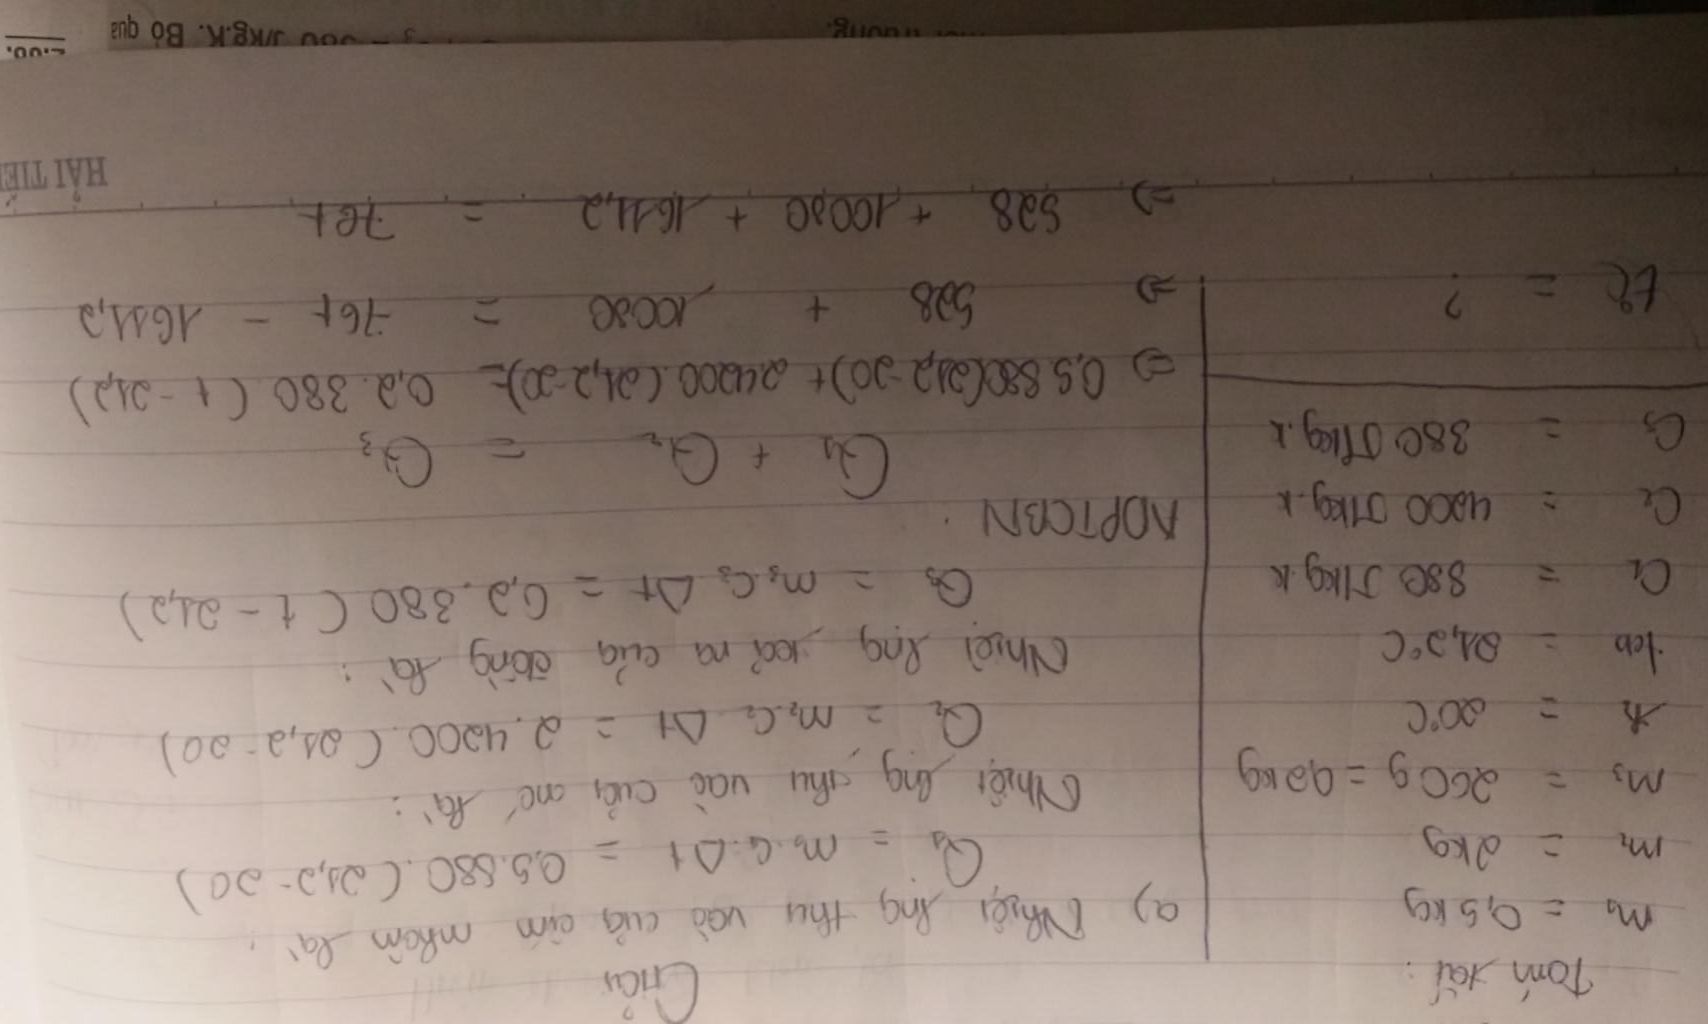 Tóm tắt:
m₁ = 0,5kg
m₂ = 2kg
m₃ = 200g = 0,2kg
t₁ = 20°C
tcb = 21,2°C
C₁ = 880 J/kg.k
C₂ = 4200 J/kg.k
C₃ = 380 J/kg.k
t°C = ?
Giải
a) Nhiệt lng thu vào của ấm nhôm là:
Q₁ = m₁.C₁.Δt = 0,5.880.(21,2-20)
Nhiệt lng thu vào của nc là:
Q₂ = m₂.C₂ Δt = 2.4200.(21,2-20)
Nhiệt lng toả ra của đồng là:
Q₃ = m₃.C₃ Δt = 0,2.380(t-21,2)
ADPTCBN:
Q₁ + Q₂ = Q₃
=> 0,5.880(21,2-20)+2.4200.(21,2-20)= 0,2.380(t-21,2)
=> 528 + 10080 = 76t - 1611,2
=> 528 + 10080 + 1611,2 = 76t
HẢI TIẾ
J/kg.K. Bỏ qua